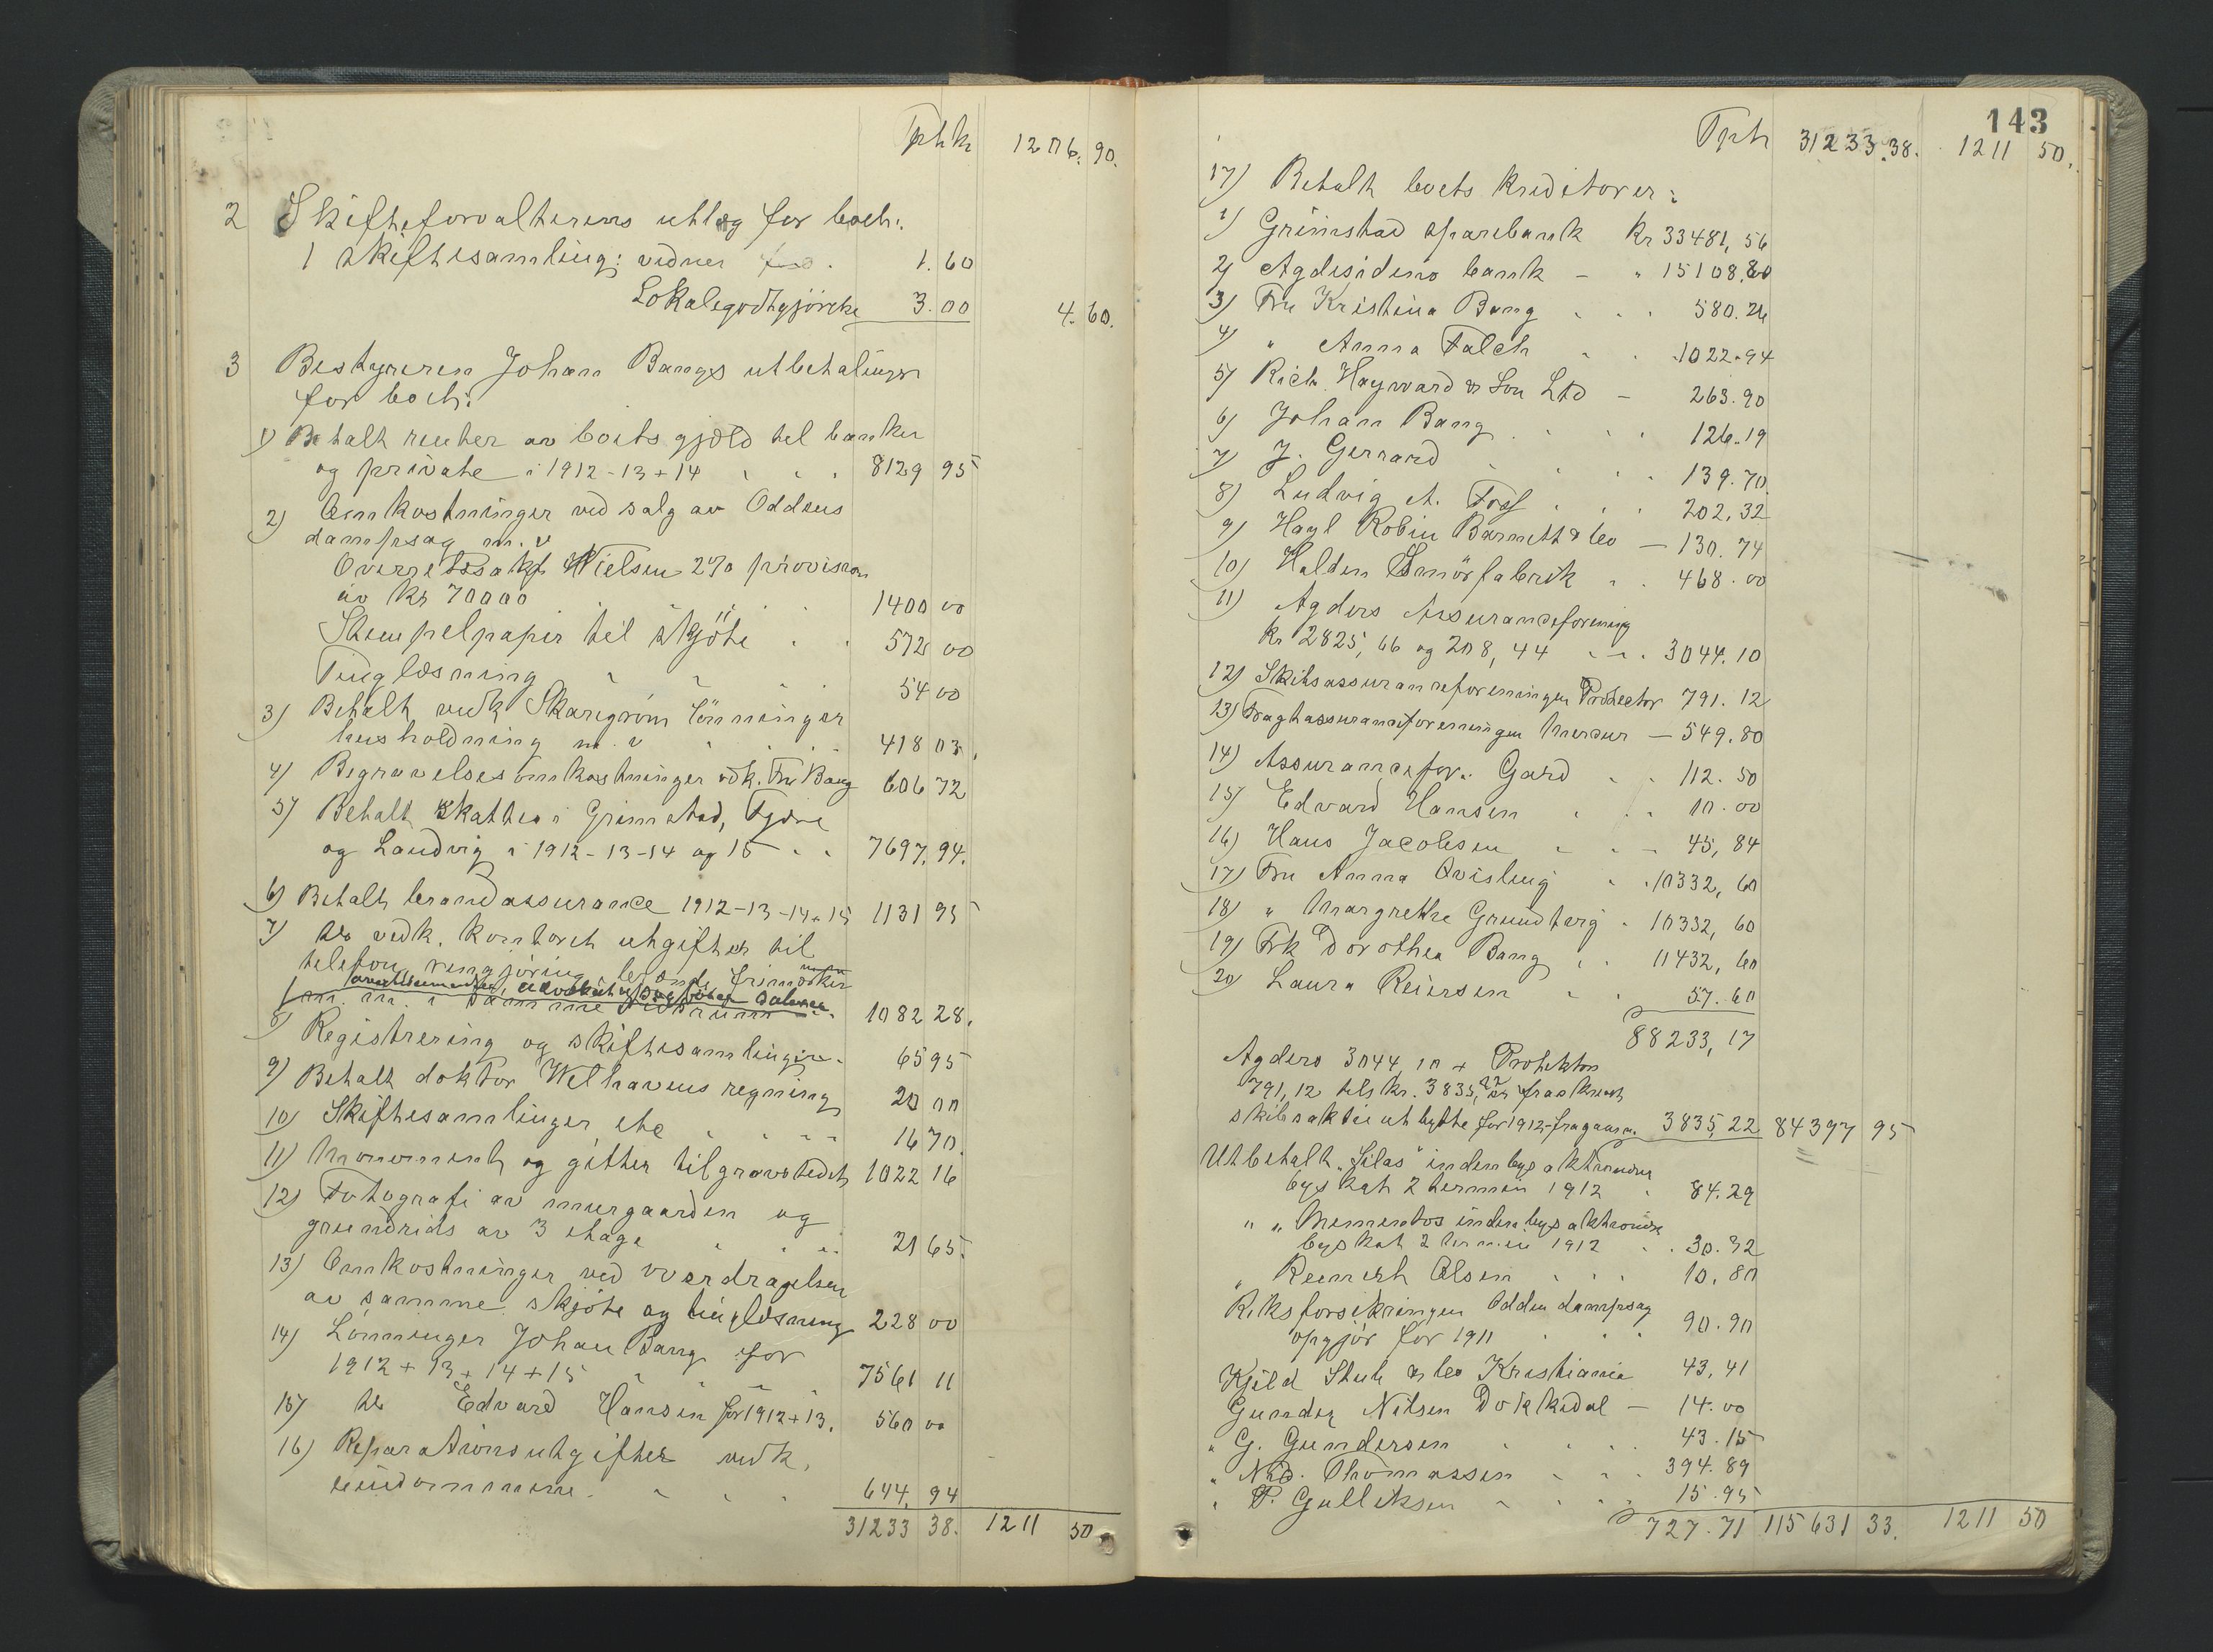 Tpt kr 1206. 90.
2 Skifteforvalterens utlæg for boet:
1 skiftesamling: vidner 1.60
Lokalegodtgjörelse 3.00 4.60.
3 Bestyreren Johan Bangs utbetalinger
for boet:
1) Betalt renter av boets gjæld til banker
og private i 1912-13+14 8129 95
2) Omkostninger ved salg av Oddens
dampsag m.v
Overretssakf Nielsen 2% provision
av Kr 70000 1400 00
Stempelpapir til skjöte 572 00
Tinglæsning 54 00
3) Betalt vedk Skaregrøm lönninger
husholdning m.v 418 03.
4) Begravelsesomkostninger vdk. Fru Bang 606 72
5) Betalt skatter i Grimstad, Fjære
og Landvig i 1912-13-14 og 15 7697.94.
6) Betalt brandassurance 1912-13-14+15 1131 95
7) do vedk. kontoret utgifter til
telefon, rengjöring, brænde, frimærker
m.m. i samme tidsrum 1082 28.
8) Registrering og skiftesamlinger 65 95
9) Betalt doktor Welhavens regning 20 00
10) Skiftesamlinger etc 16 70.
11) Monument og gitter til gravstedet 1022 16
12) Fotografi av murgaarden og
grundrids av 3 etage 21 65.
13) Omkostninger ved overdragelsen
av samme: skjöte og tinglæsning 228 00
14) Lönninger Johan Bang for
1912+13+14+15 7561 11
15) do Edvard Hansen for 1912+13. 560 00
16) Reparationsutgifter vedk.
eiendommene. 644. 94
31233 38. 1211 50
143
Tpt 31233.38. 1211 50.
17) Betalt boets kreditorer:
1) Grimstad sparebank Kr 33481,56
2) Agdesidens bank - " 15108,80
3) Fru Kristina Bang 580.26
4) " Anna Falch 1022.94
5) Rich. Hayward & Son Ltd - 263.90
6) Johan Bang 126.19
7) J. Gerrard 139.70.
8) Ludvig A. 202,32
9) Hayl Robin Barnett & Co - 130.74
10) Halden Smörfabrik 468.00
11) Agders Assuranceforening
kr 2825,66 og 208,44 3044.10
12) Skibsassuranceforeningen Protector 791.12
13) Fragtassuranceforeningen Mercur - 549.80
14) Assurancefor. Gard 112.50
15) Edvard Hansen 10.00
16) Hans Jacobsen 45,84
17) Fru Anna Qvisling 10332,60
18) " Margrethe Grundberg 10332,60
19) Frk Dorothea Bang 11432,60
20) Laura Reiersen 57.60
88233,17
Agders 3044,10 + Protektor
791,12 tils kr. 3835,22 fraskrevet
skibsaktieutbytte for 1912 fragaar 3835,22 84397 95
Utbetalt "Silas" indenbys aktionærer
byskat 2 termin 1912 84.29
" " Mementos indenbys aktionærer
byskat 2 termin 1912 30.32
" Reinert Olsen 10.80
Riksforsikringen Odden dampsag
opgjör for 1911 90.90
Kjeld Stub & Co Kristiania 43,41
Gunder Nilsen Dokkedal - 14.00
" G. Gundersen 43.15
" Nic. Thomassen 394.89
" P. Gulliksen 15.95
727.71 115631 33. 1211 50